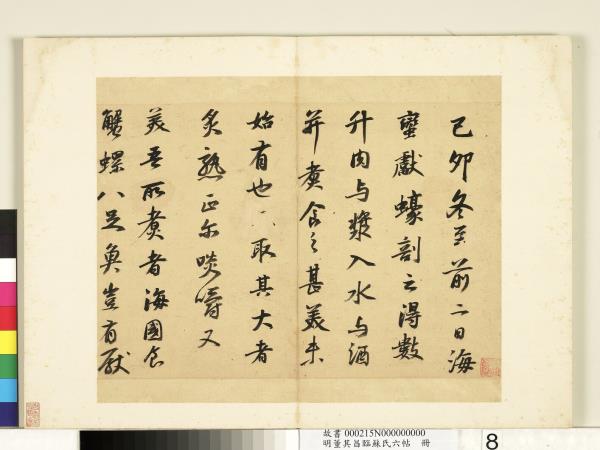 己卯冬至前二日海
蠻獻蠔剖之得數
升肉与漿入水与酒
并煮食之甚美未
始有也又取其大者
炙熟正尔啖嚼又
美吾所煮者海國食
蟹螺八足魚豈有厭
故書 000215N000000000
明董其昌臨蘇氏六帖 冊
8